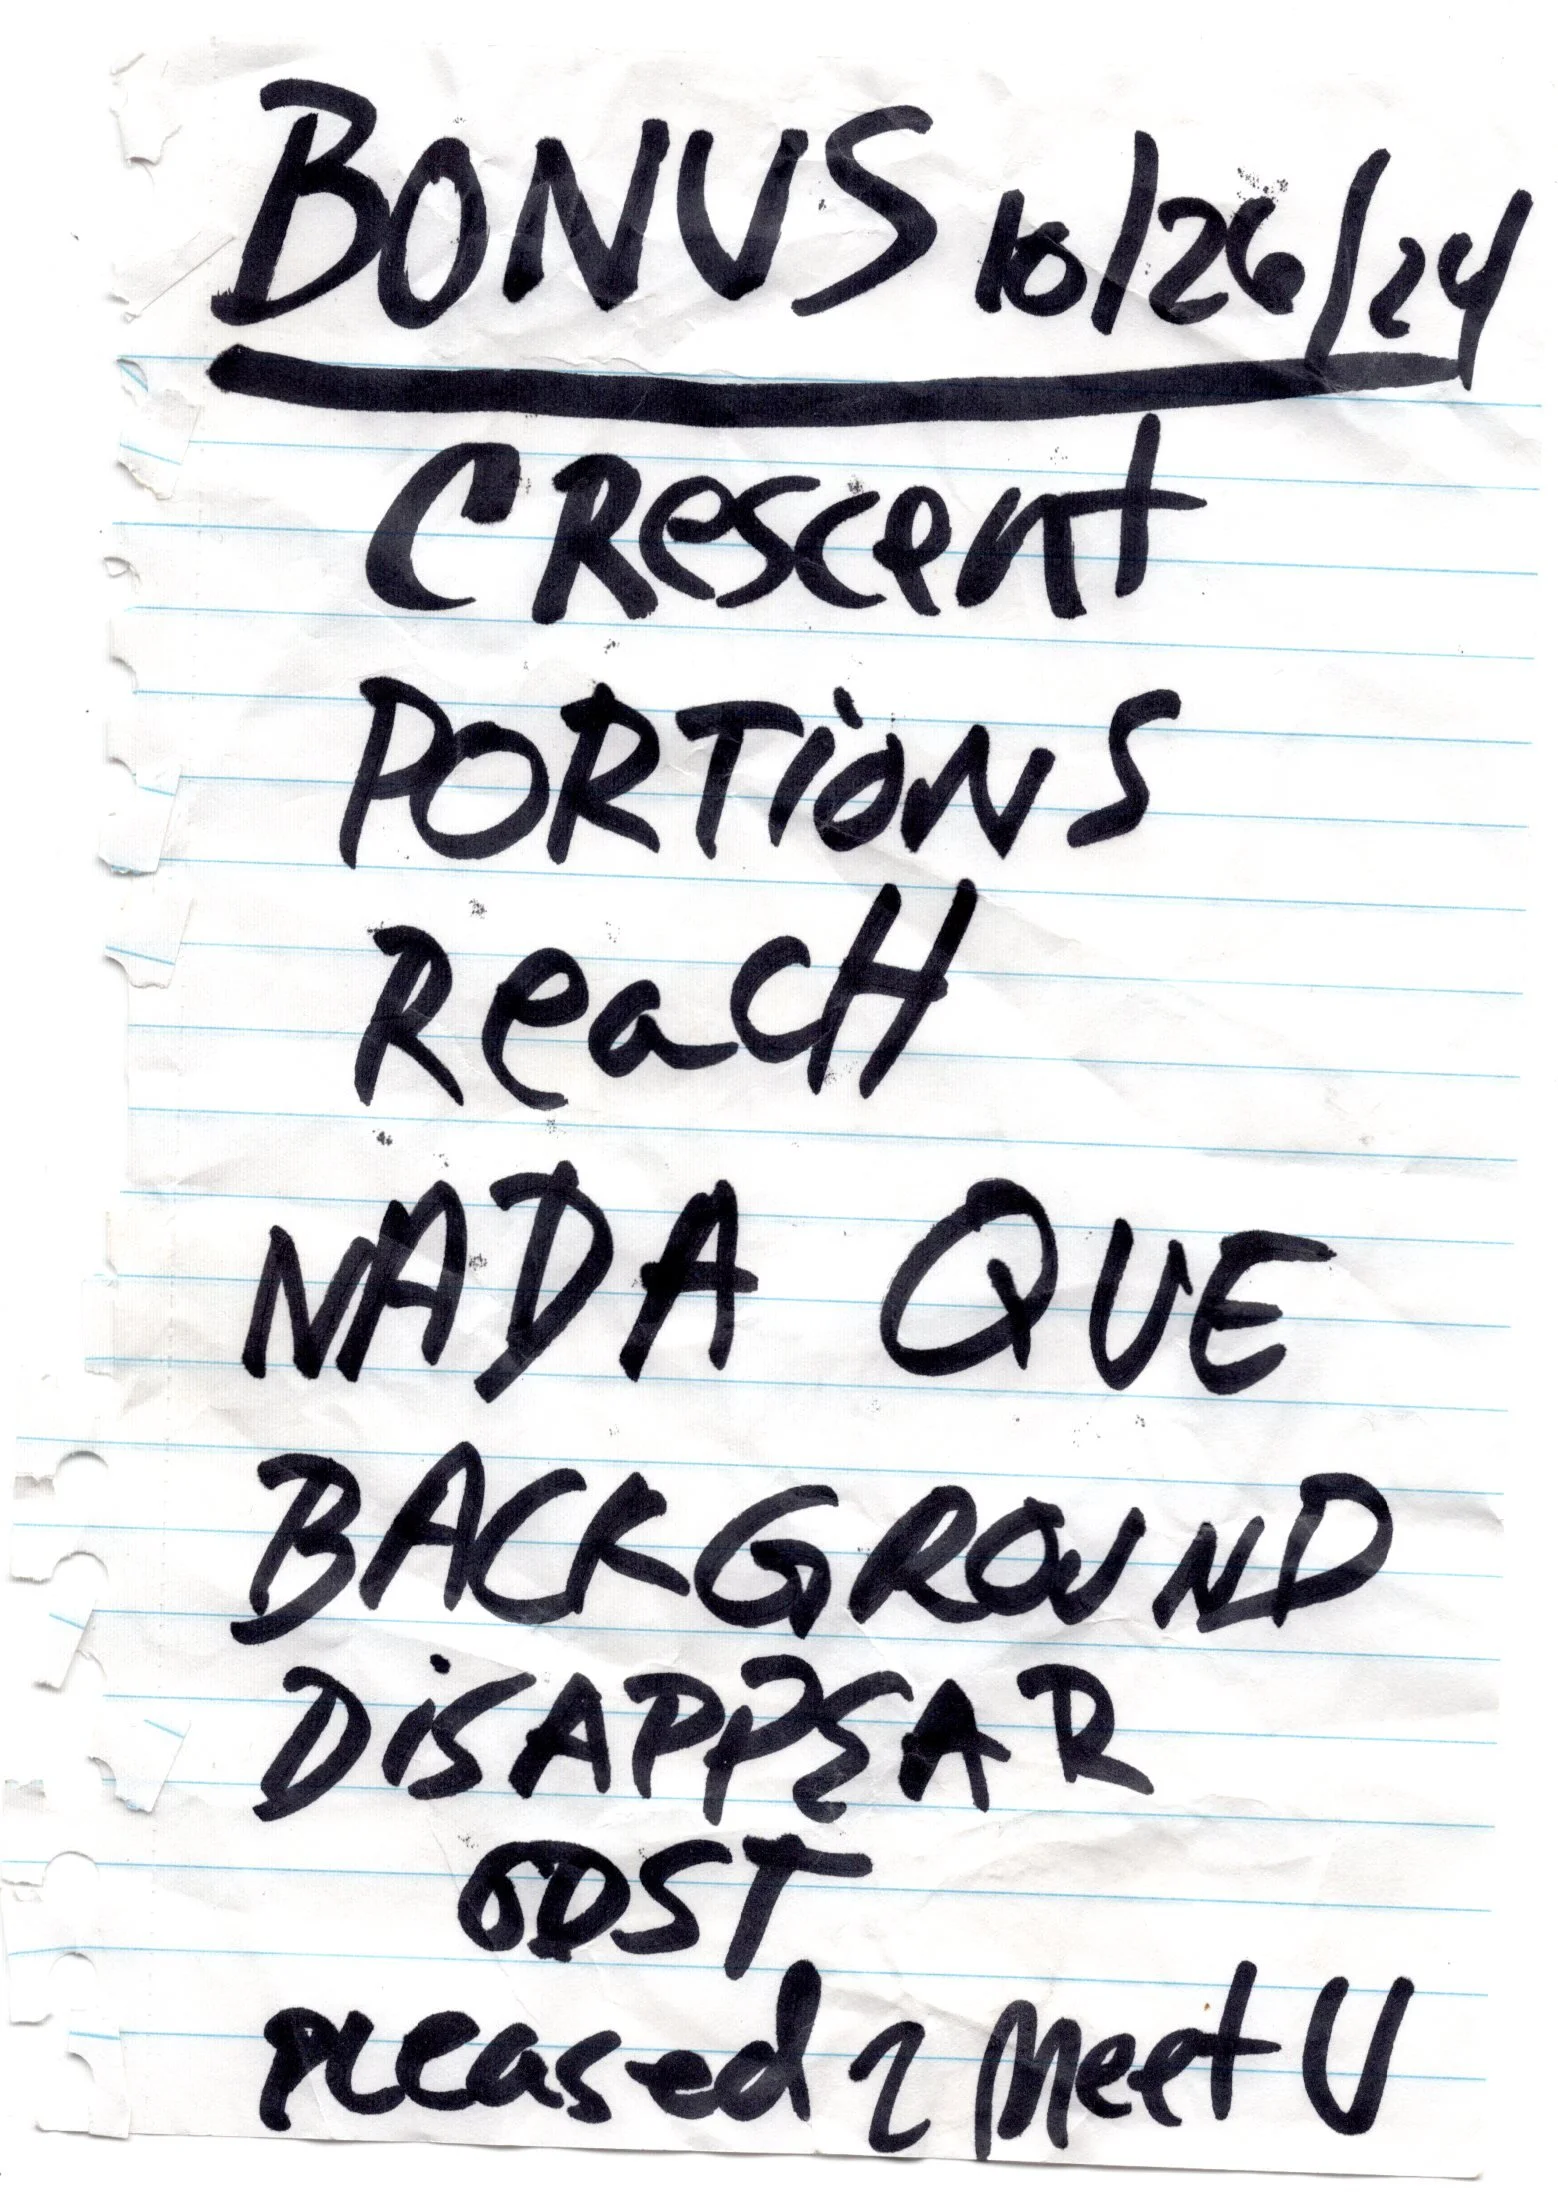 BONUS 10/26/24
CRescent
PORTiONS
ReacH
NADA QUE
BACKGROUND
DiSAPPEAR
ODST
pleased 2 Meet U